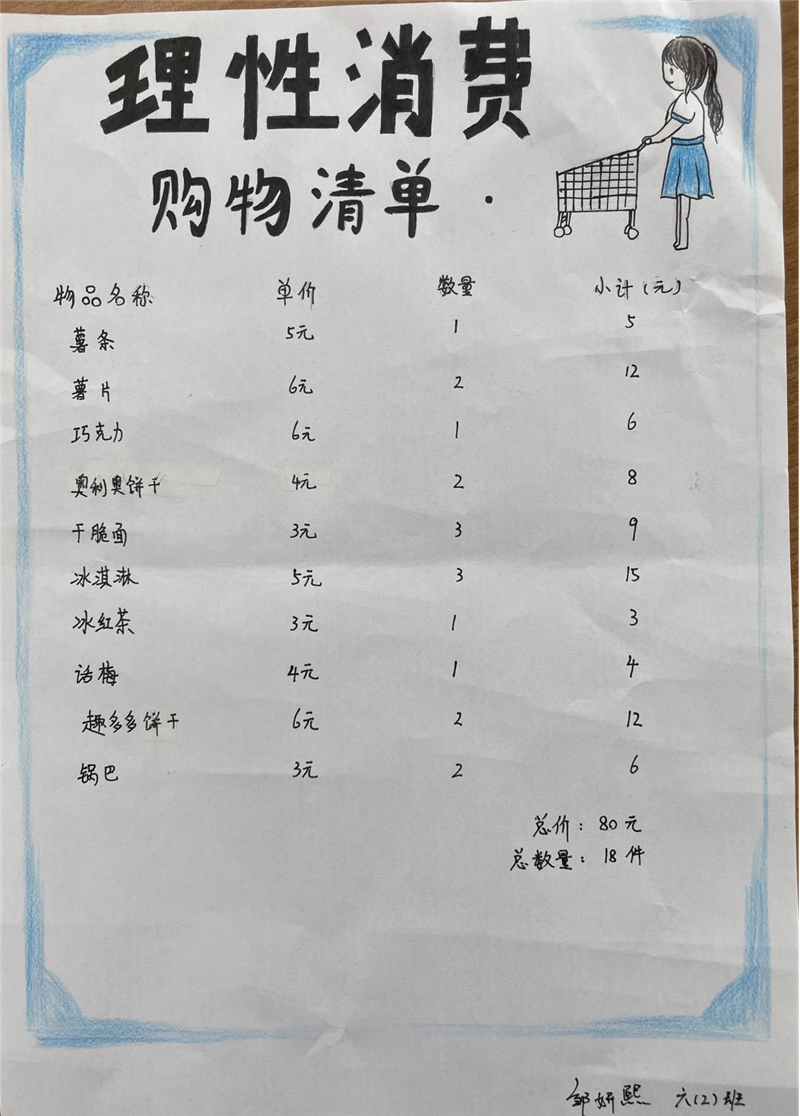 理性消费
购物清单.
物品名称 单价 数量 小计(元)
薯条 5元 1 5
薯片 6元 2 12
巧克力 6元 1 6
奥利奥饼干 4元 2 8
干脆面 3元 3 9
冰淇淋 5元 3 15
冰红茶 3元 1 3
话梅 4元 1 4
趣多多饼干 6元 2 12
锅巴 3元 2 6
总价：80元
总数量：18件
邹妍熙 六(2)班